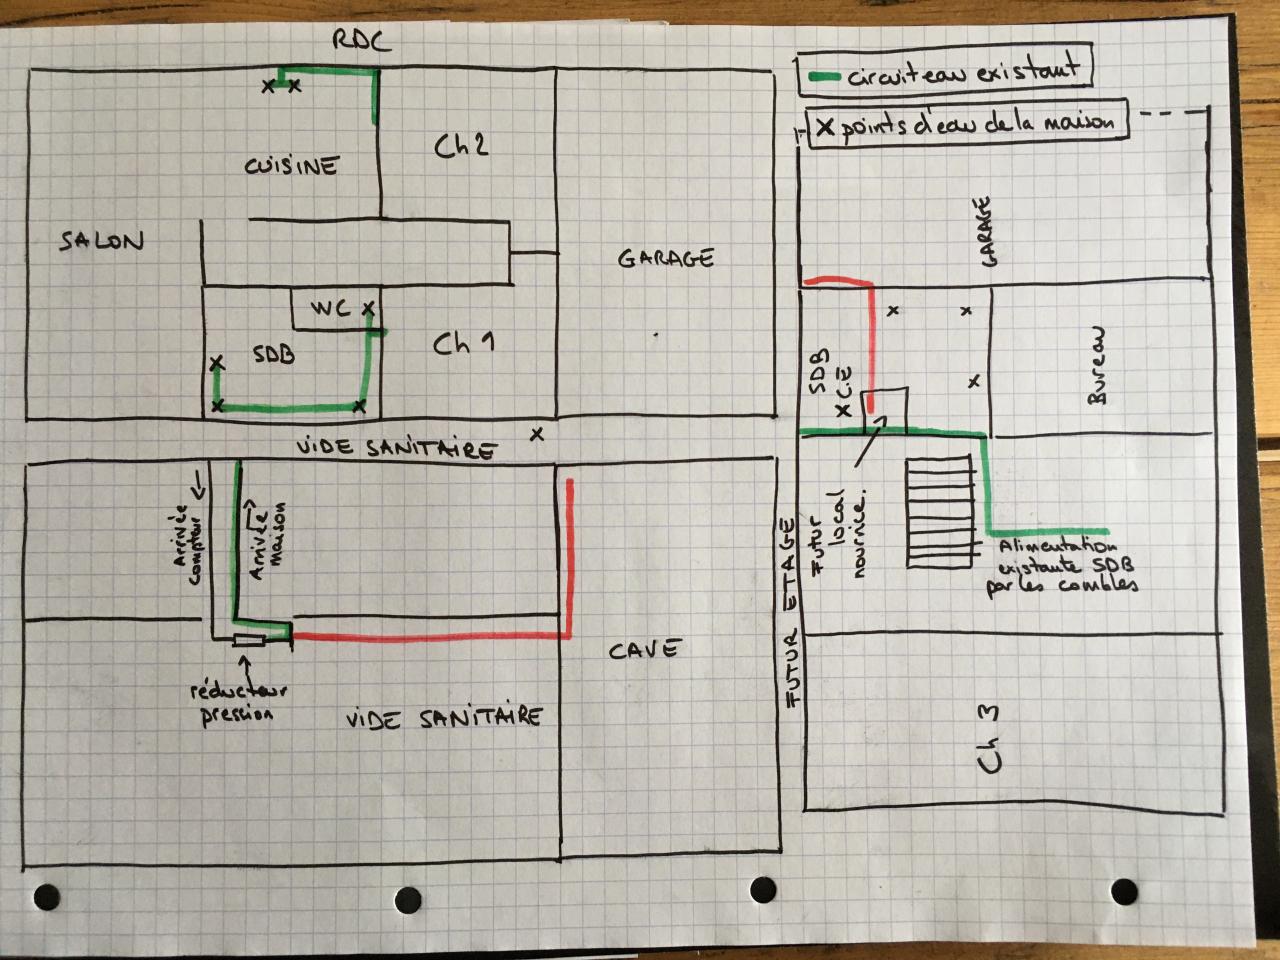 RDC
circuit eau existant
X points d'eau de la maison
CUISINE
Ch 2
SALON
GARAGE
GARAGE
WC
SDB
Ch 1
SDB
X C.E
Bureau
VIDE SANITAIRE
Arrivée
compteur
Arrivée
maison
réducteur
pression
VIDE SANITAIRE
CAVE
FUTUR ETAGE
Futur
local
nourrice.
Alimentation
existante SDB
par les combles
Ch 3